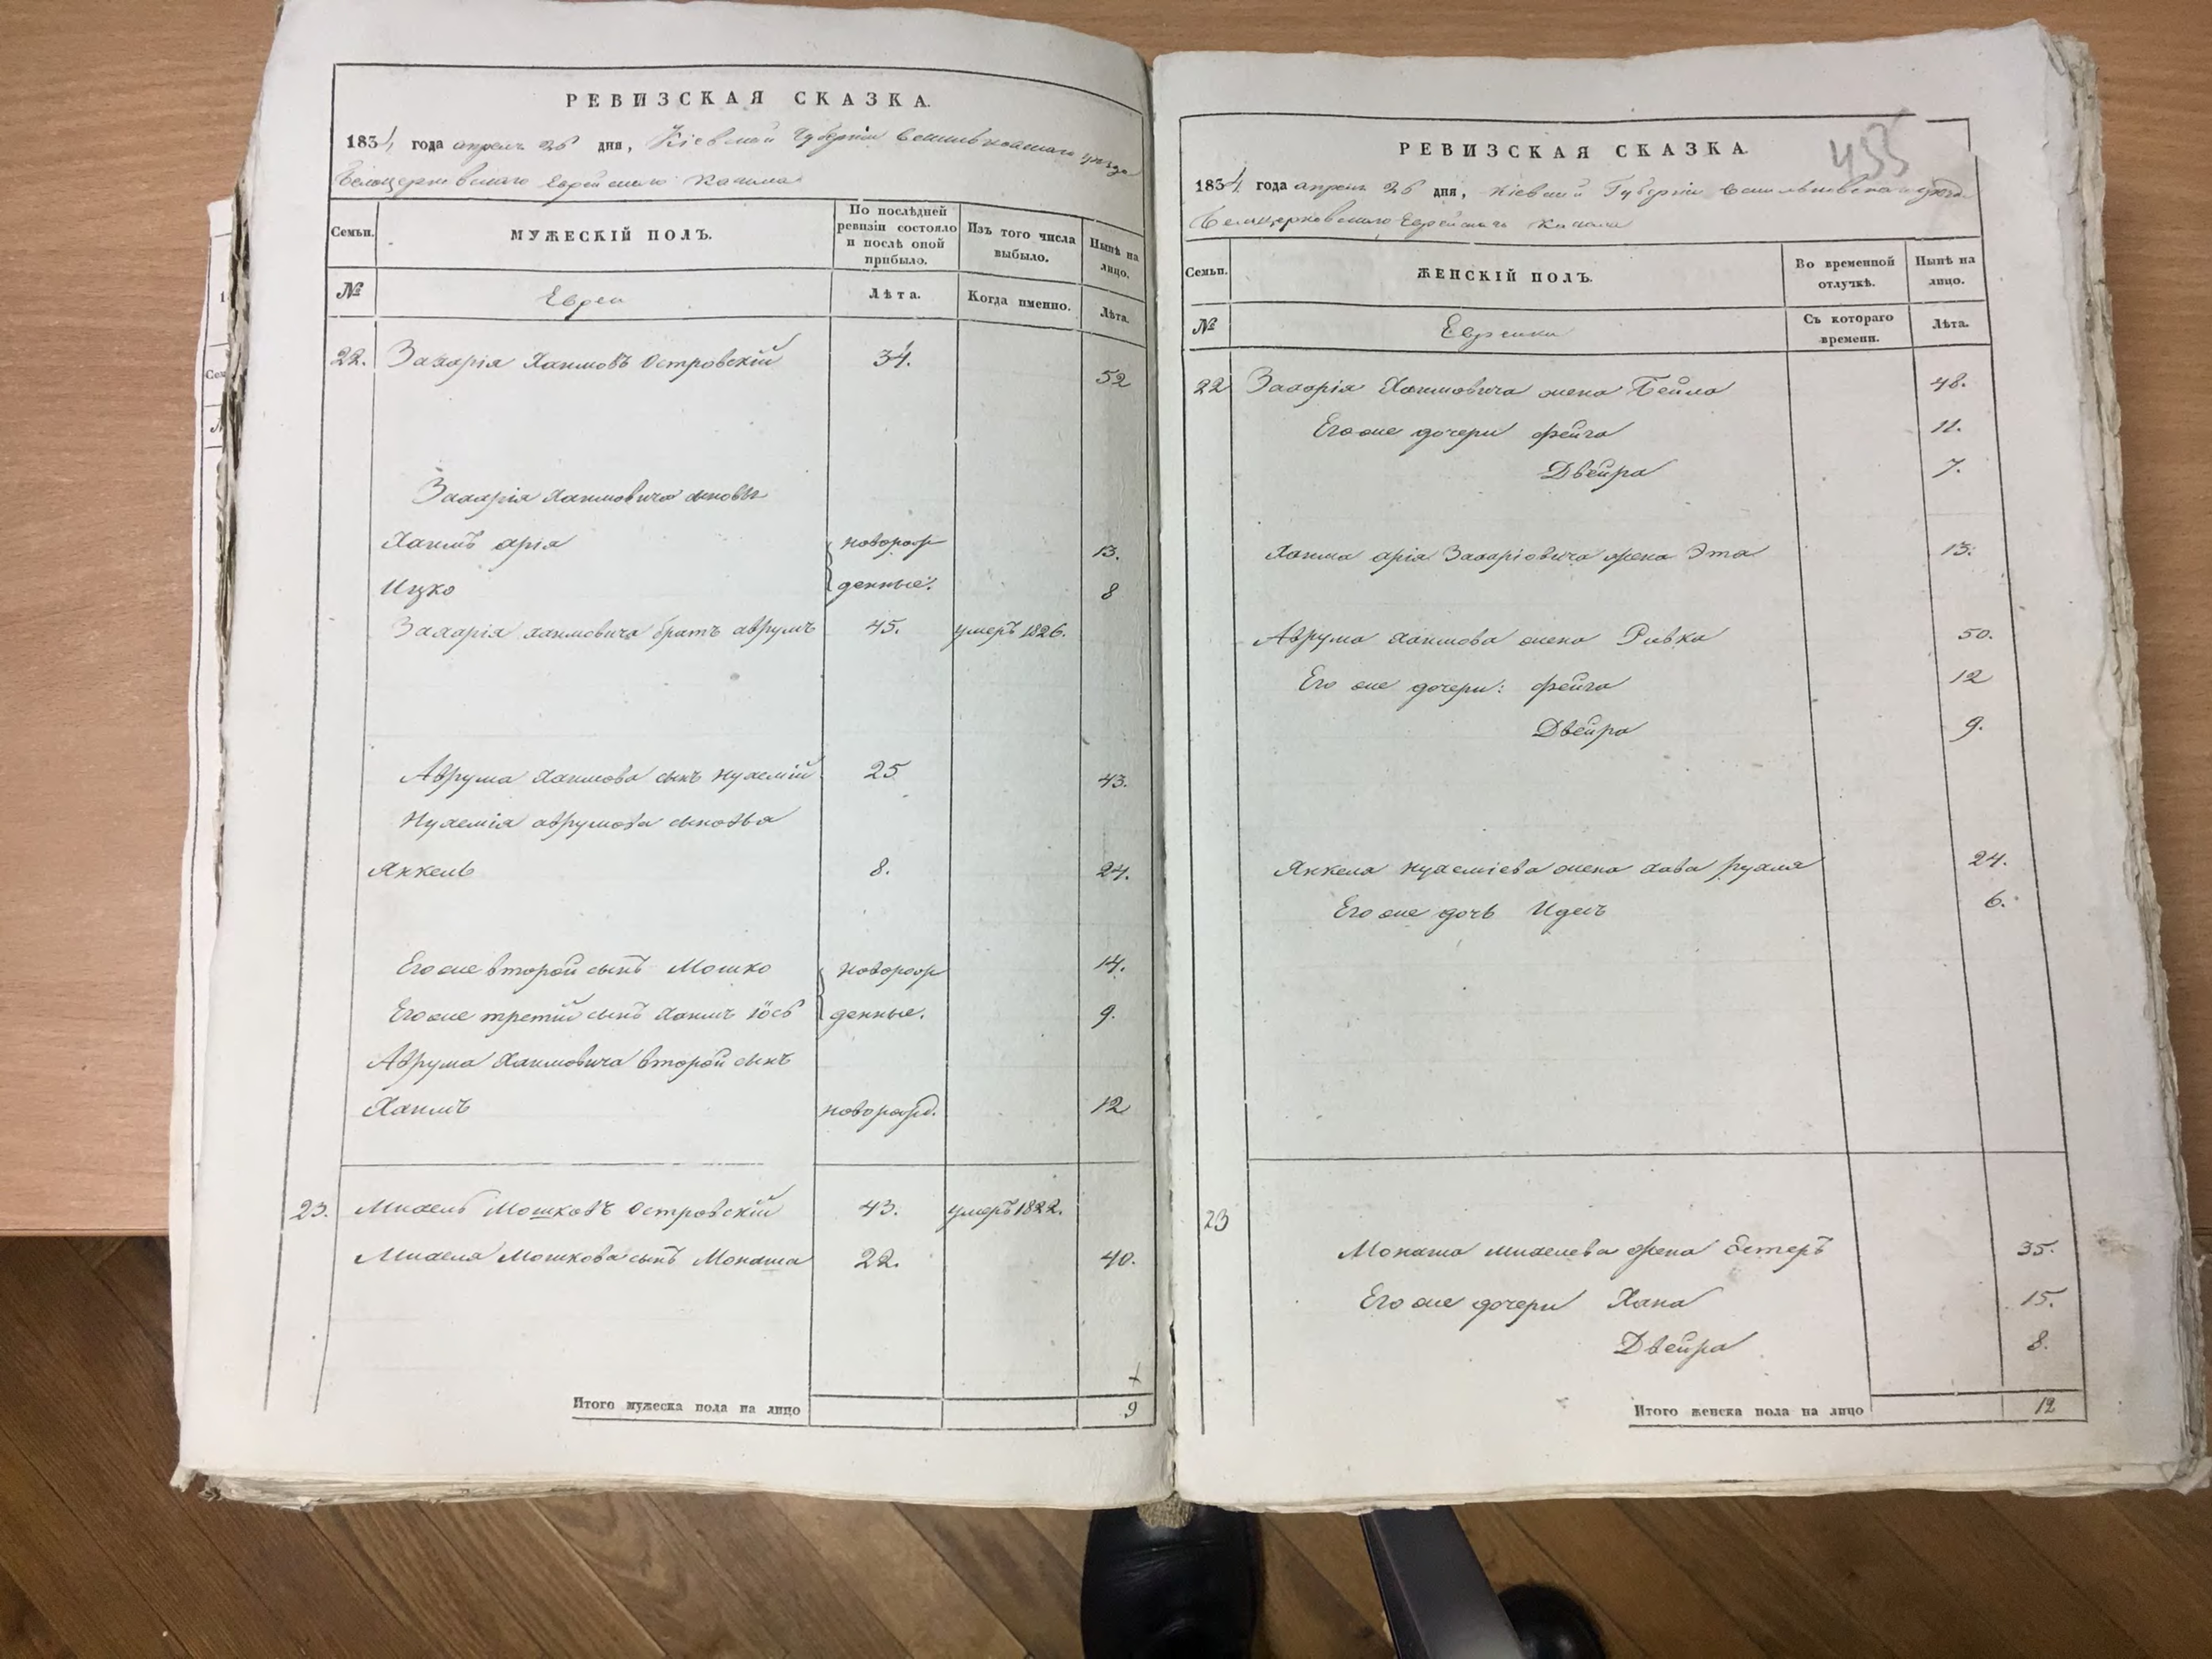 РЕВИЗСКАЯ СКАЗКА.
1834 года апреля 26 дня, Кіевской Губерніи Васильковскаго уезда
Белоцерковскаго Еврейскаго Кагала
Семьи. МУЖЕСКІЙ ПОЛЪ. По послѣдней ревизіи состояло и послѣ оной прибыло. Изъ того числа выбыло. Нынѣ на лицо.
№ Евреи Лѣта. Когда именно. Лѣта.
22. Захарія Хаимовъ Островскій 34. 52
Захарія Хаимовича сыновья
Хаимъ арія новорож 13.
Ицко денные. 8
Захарія хаимовича братъ аврумъ 45. умеръ 1826.
Аврума хаимова сынъ нухемій 25 43.
Нухемія аврумова сыновья
Янкель 8. 24.
Его же второй сынъ Мошко новорож 14.
Его же третій сынъ хаимъ іосъ денные. 9.
Аврума Хаимовича второй сынъ
Хаимъ новорожд. 12
23. Михель Мошковъ Островскій 43. умеръ 1822.
Михеля Мошкова сынъ Монаша 22. 40.
Итого мужеска пола на лицо 9
435
РЕВИЗСКАЯ СКАЗКА.
1834 года апреля 26 дня, Кіевской Губерніи Васильковскаго уезда
Белоцерковскаго Еврейскаго Кагала
Семьи. ЖЕНСКІЙ ПОЛЪ. Во временной отлучкѣ. Нынѣ на лицо.
№ Еврейки Съ котораго времени. Лѣта.
22 Захарія Хаимовича жена Бейла 48.
Его же дочери фейга 11.
Двейра 7.
Хаима арія Захаріовича жена Эта 13.
Аврума хаимова жена Ривка 50.
Его же дочери: фейга 12
Двейра 9.
Янкеля нухеміева жена хава рухля 24.
Его же дочь Идесъ 6.
23
Монаша михелева жена Естеръ 35.
Его же дочери Хана 15.
Двейра 8.
Итого женска пола на лицо 12